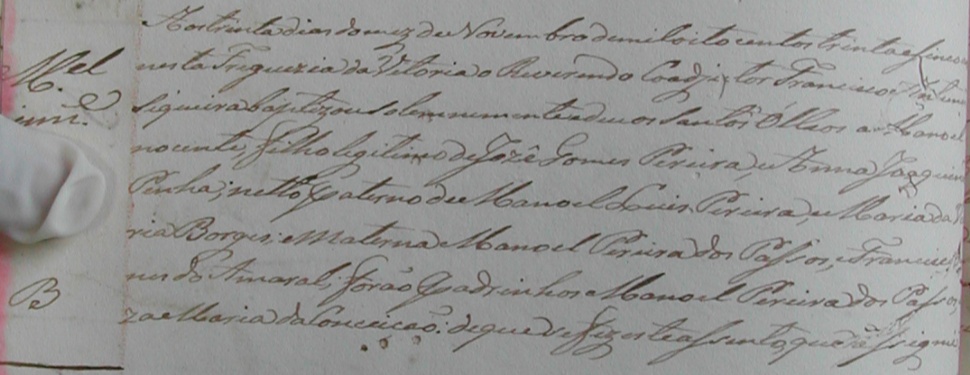 Aos trinta dias do mez de Novembro de mil oito centos trinta e sinco
nesta Freguezia da Vitoria o Reverendo Coadjutor Francisco
Mel
Siqueira baptizou solemnemente e deu os Santos Olleos a Manoel
inn.e
nocente, filho legitimo de Jozê Gomes Pereira, e Anna Joaquin
Penha; netto paterno de Manoel Luis Pereira, e Maria da
ria Borges; e Materna Manoel Pereira dos Passos, e Francisca
B
nes do Amaral; forão Padrinhos Manoel Pereira dos Passos,
za e Maria da Conceicão: de que se fiz este assento, que assignei